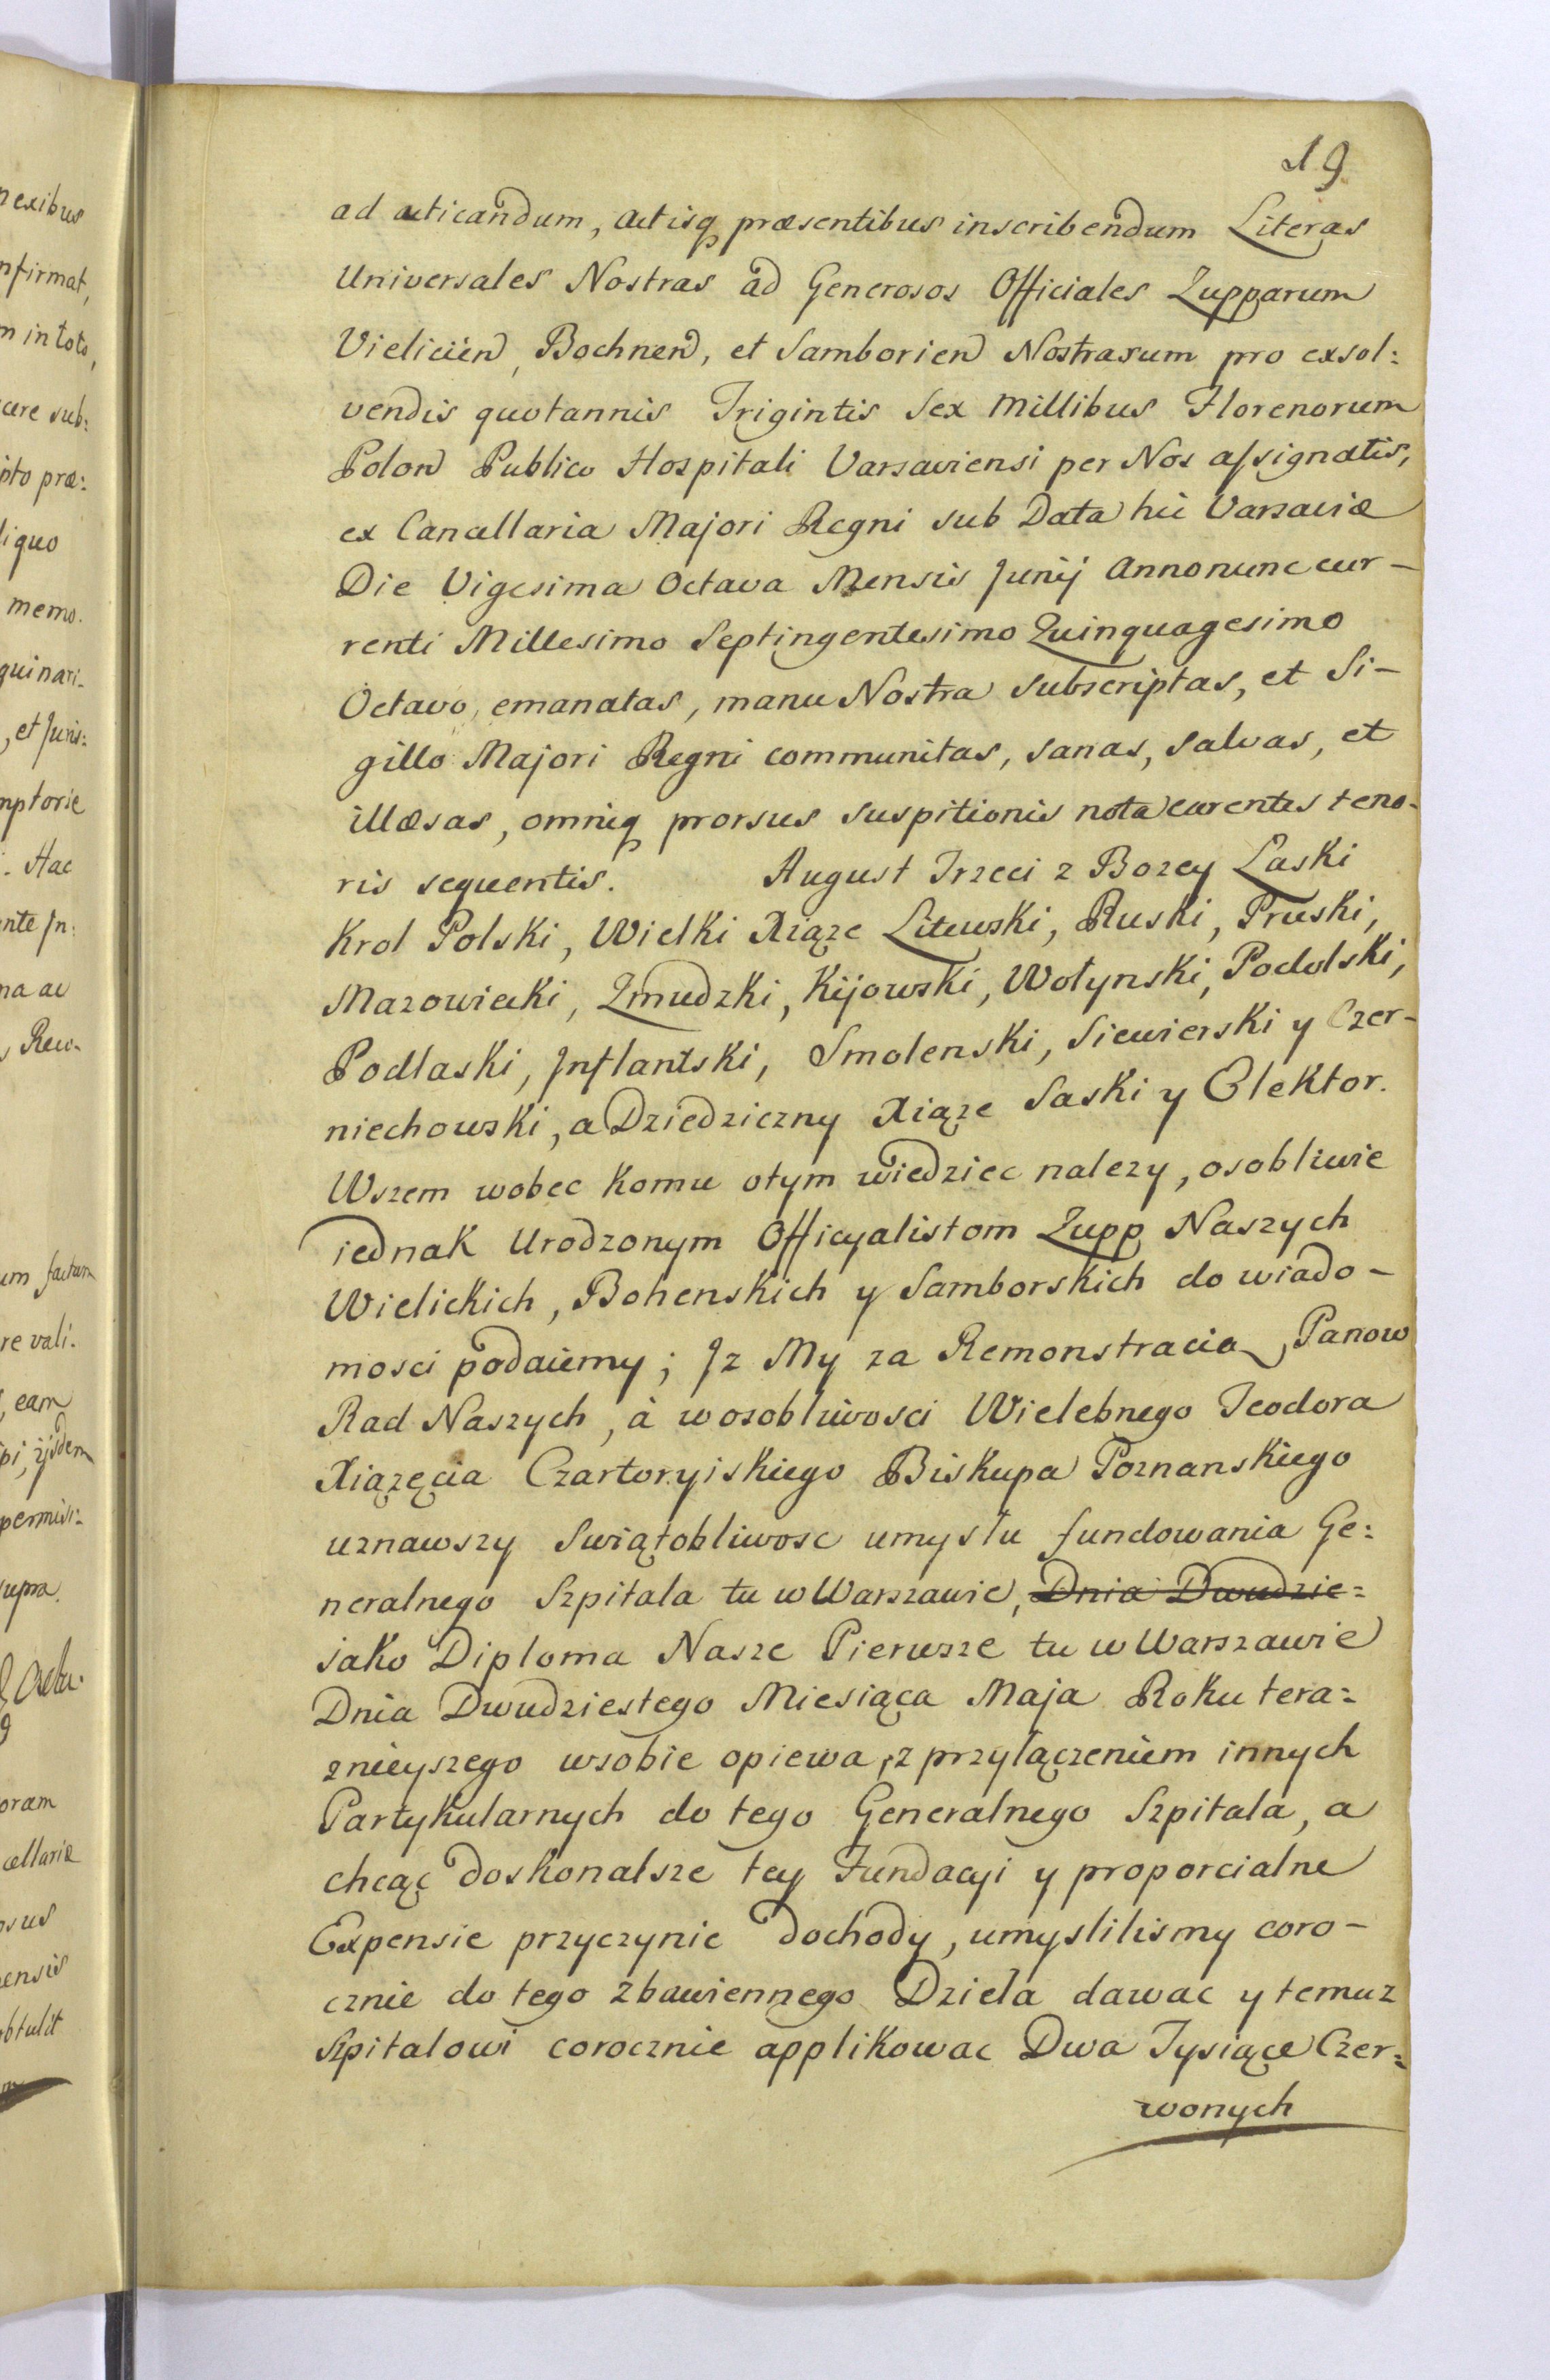 19
ad acticandum, actisq præsentibus inscribendum Literas
Universales Nostras ad Generosos Officiales Zupparum
Vieliцien, Bochnen, et Samborien Nostrarum pro exsol:
vendis quotannis Trigintis Sex Millibus Florenorum
Polon Publico Hospitali Varsaviensi per Nos assignatis,
ex Cancellaria Majori Regni sub Data hic Varsaviæ
Die Vigesima Octava Mensis Junij Anno nunc cur-
renti Millesimo Septingentesimo Quinquagesimo
Octavo, emanatas, manu Nostra subscriptas, et Si-
gillo Majori Regni communitas, sanas, salvas, et
illæsas, omniq prorsus suspitionis nota carentes teno-
ris sequentis. August Trzeci z Bozey Laski
Krol Polski, Wielki Xiąze Litewski, Ruski, Pruski,
Mazowiecki, Zmudzki, Kijowski, Wołynski, Podolski,
Podlaski, Inflantski, Smolenski, Siewierski y Czer-
niechowski, a Dziedziczny Xiąze Saski y Elektor.
Wszem wobec Komu otym wiedziec nalezy, osobliwie
iednak Urodzonym Officyalistom Zupp Naszych
Wielickich, Bohenskich y Samborskich do wiado-
mosci podaiemy; Jz My za Remonstracią Panow
Rad Naszych, à wosobliwosci Wielebnego Teodora
Xiązęcia Czartoryiskiego Biskupa Poznanskiego
uznawszy Swiątobliwosc umysłu fundowania Ge:
neralnego Szpitala tu w Warszawie, Dnia Dwudzie=
jako Diploma Nasze Pierwsze tu w Warszawie
Dnia Dwudziestego Miesiąca Maja Roku tera=
znieyszego wsobie opiewa, z przyłączeniem innych
Partykularnych do tego Generalnego Szpitala, a
chcąc doskonalsze tey Fundacyi y proporcialne
Expensie przyczynic dochody, umyslilismy coro-
cznie do tego zbawiennego Dziela dawac y temuz
Szpitalowi corocznie applikowac Dwa Tysiące Czer=
wonych
nexibus
nfirmat,
m in toto,
cere sub:
pto præ:
liquo
memo.
quinari-
, et Juris:
mptorie
. Hac
nte Jn:
na ac
Rew.
um factum
re vali.
, eam
pi, ijsdem
permisi:
supra.
oram
cellariæ
sus
ensis
obtulit